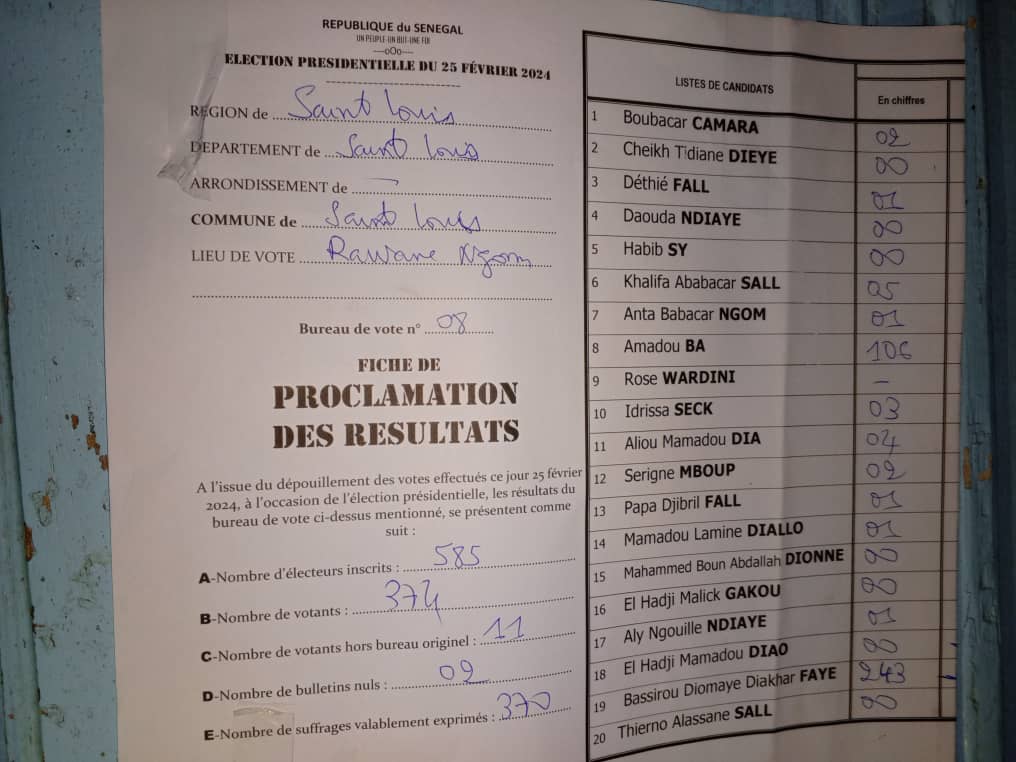 REPUBLIQUE du SENEGAL
UN PEUPLE-UN BUT-UNE FOI
----oOo----
ELECTION PRESIDENTIELLE DU 25 FÉVRIER 2024
REGION de Saint Louis
DEPARTEMENT de Saint Louis
ARRONDISSEMENT de —
COMMUNE de Saint Louis
LIEU DE VOTE Rawane Ngom
Bureau de vote n° 08
FICHE DE
PROCLAMATION
DES RESULTATS
A l'issue du dépouillement des votes effectués ce jour 25 février
2024, à l'occasion de l'élection présidentielle, les résultats du
bureau de vote ci-dessus mentionné, se présentent comme
suit :
A-Nombre d'électeurs inscrits : 585
B-Nombre de votants : 374
C-Nombre de votants hors bureau originel : 11
D-Nombre de bulletins nuls : 02
E-Nombre de suffrages valablement exprimés : 370
LISTES DE CANDIDATS En chiffres
1 Boubacar CAMARA 02
2 Cheikh Tidiane DIEYE 00
3 Déthié FALL 01
4 Daouda NDIAYE 00
5 Habib SY 00
6 Khalifa Ababacar SALL 05
7 Anta Babacar NGOM 01
8 Amadou BA 106
9 Rose WARDINI —
10 Idrissa SECK 03
11 Aliou Mamadou DIA 04
12 Serigne MBOUP 02
13 Papa Djibril FALL 01
14 Mamadou Lamine DIALLO 01
15 Mahammed Boun Abdallah DIONNE 00
16 El Hadji Malick GAKOU 00
17 Aly Ngouille NDIAYE 01
18 El Hadji Mamadou DIAO 00
19 Bassirou Diomaye Diakhar FAYE 243
20 Thierno Alassane SALL 00